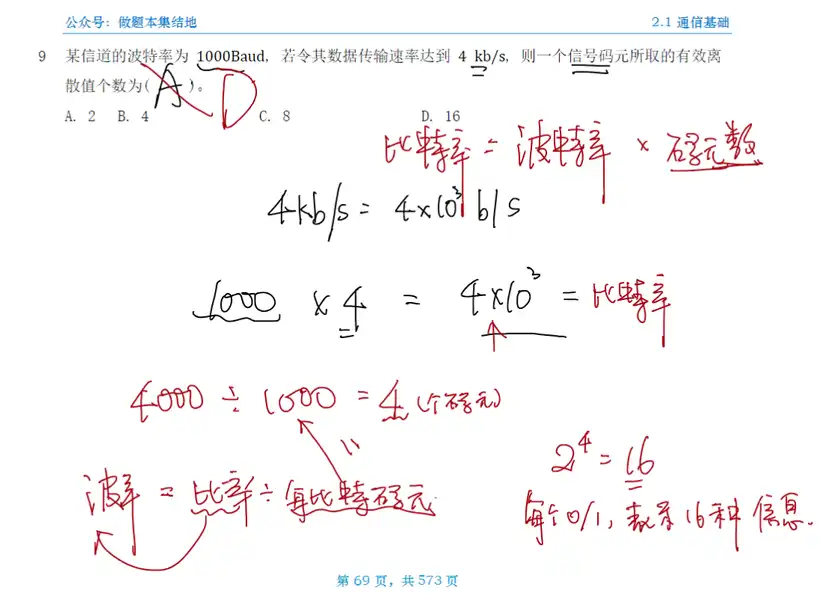 公众号：做题本集结地 2.1 通信基础
9 某信道的波特率为 1000Baud，若令其数据传输速率达到 4 kb/s，则一个信号码元所取的有效离
散值个数为( A )。 D
A. 2 B. 4 C. 8 D. 16
比特率 = 波特率 × 码元数
4kb/s = 4×10³ b/s
1000 × 4 = 4×10³ = 比特率
4000 ÷ 1000 = 4 (个码元)
2⁴ = 16
波率 = 比率 ÷ 每比特码元
每个0/1, 表示16种信息.
第 69 页，共 573 页